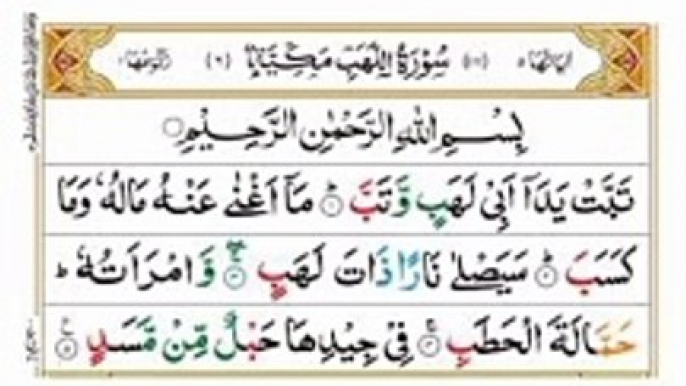 اٰیَاتُهَا ۵ (۱۱۱) سُوْرَةُ اللَّهَبِ مَكِّيَّةٌ (۶) رُكُوْعُهَا ۱
بِسْمِ اللهِ الرَّحْمٰنِ الرَّحِيْمِ
تَبَّتْ يَدَآ اَبِيْ لَهَبٍ وَّتَبَّ ۱ مَآ اَغْنٰى عَنْهُ مَالُهٗ وَمَا
كَسَبَ ۲ سَيَصْلٰى نَارًا ذَاتَ لَهَبٍ ۳ وَّامْرَاَتُهٗ ط
حَمَّالَةَ الْحَطَبِ ۴ فِيْ جِيْدِهَا حَبْلٌ مِّنْ مَّسَدٍ ۵